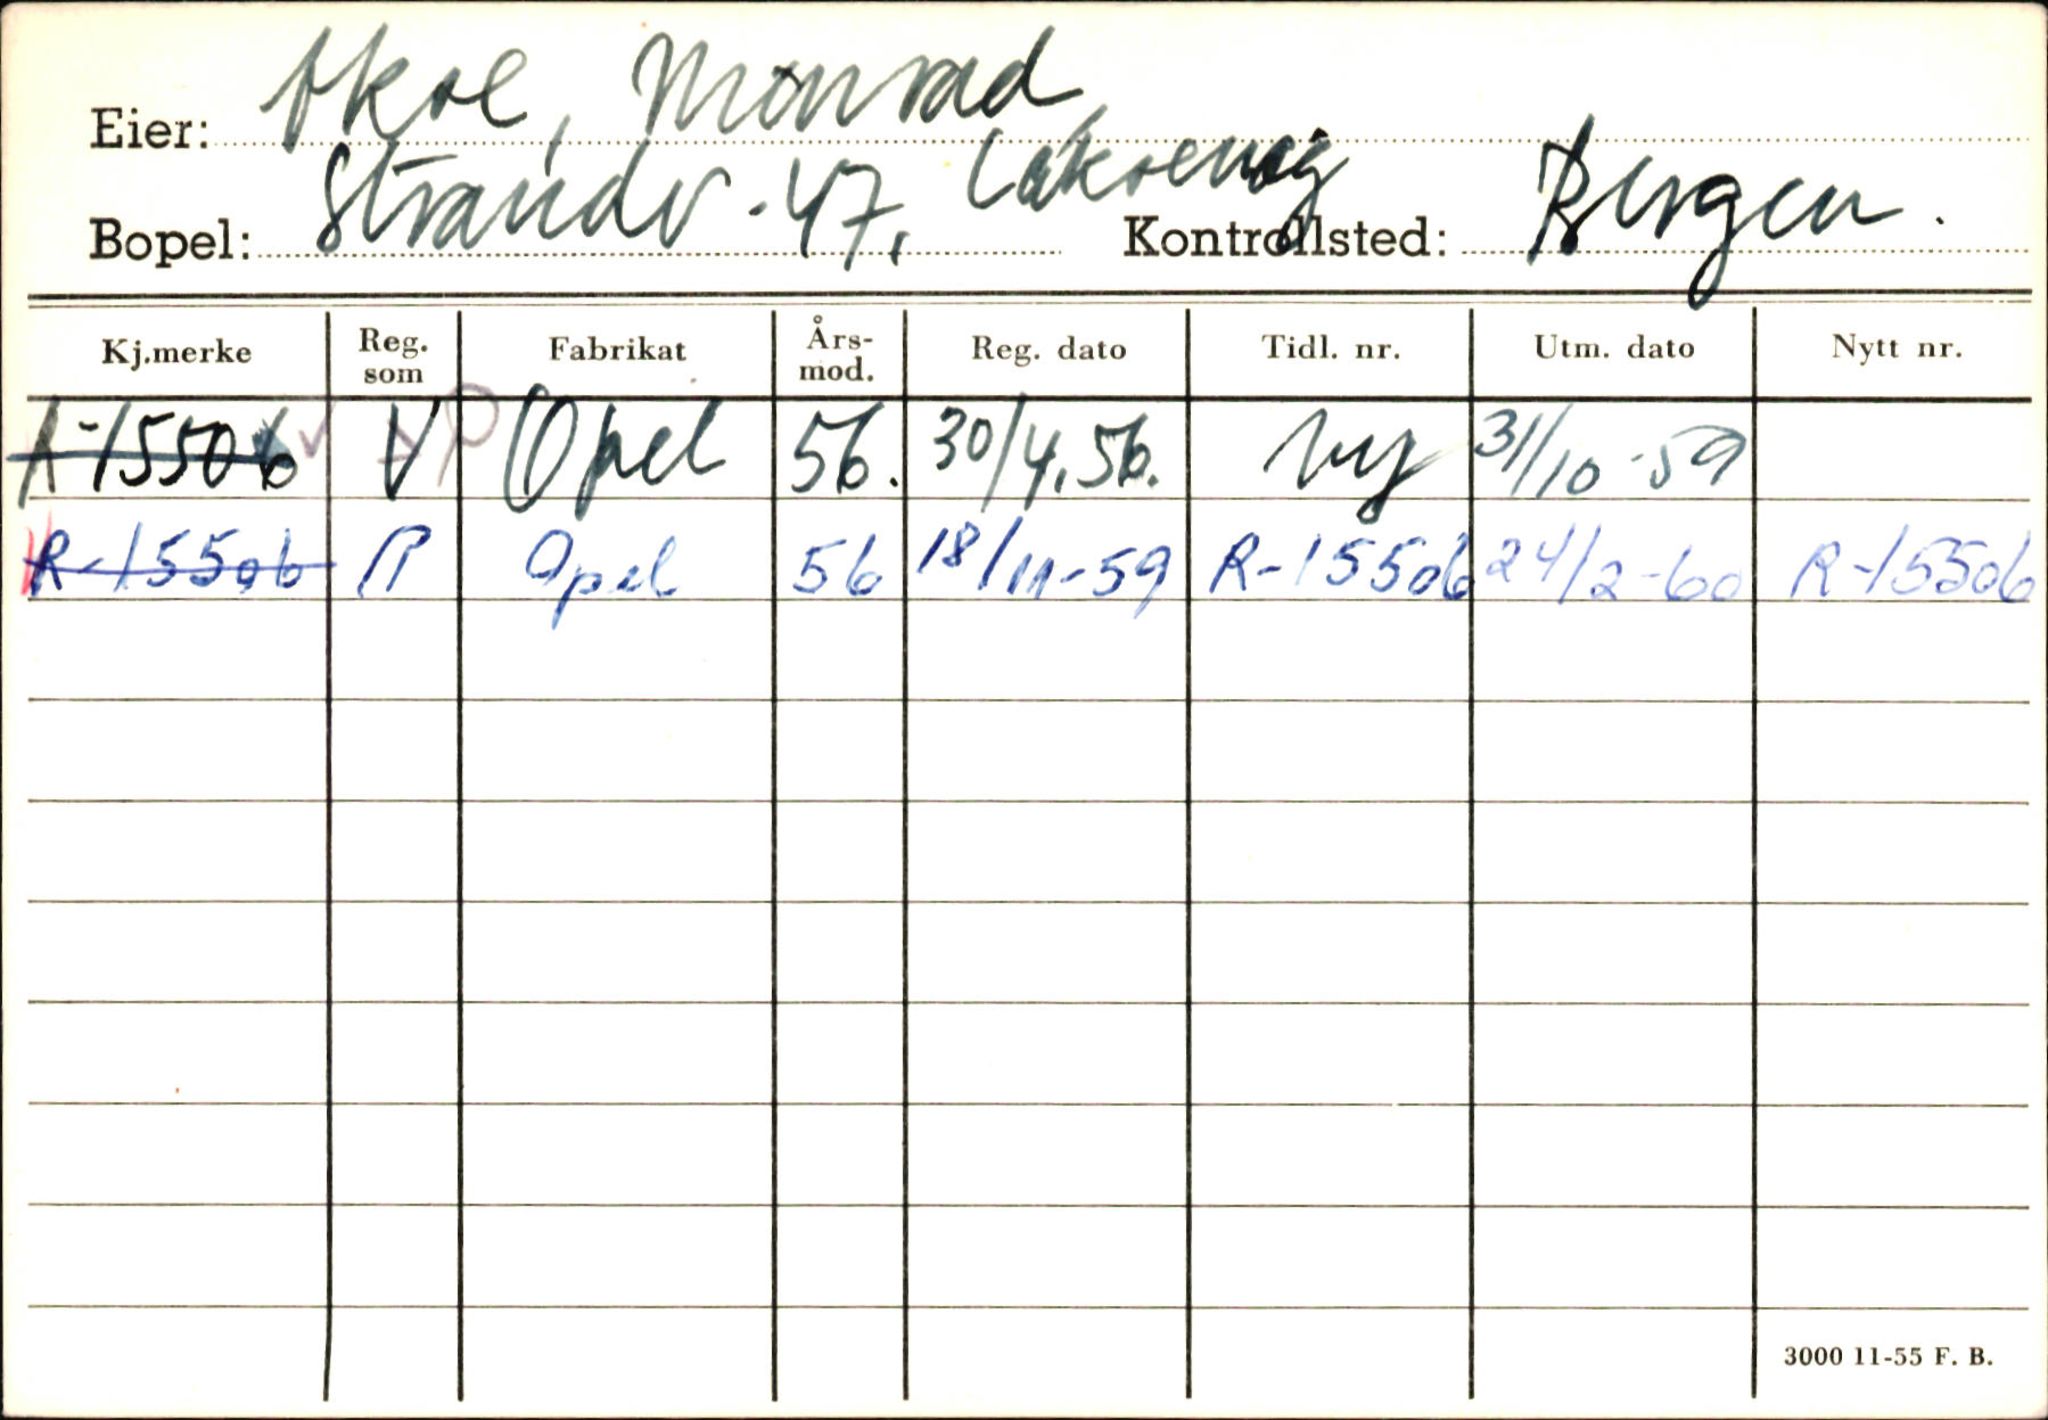 Eier: Økse, Monrad
Bopel: Strandv. 47, Laksevåg Kontrollsted: Bergen.
Kj.merke Reg. som Fabrikat Års-mod. Reg. dato Tidl. nr. Utm. dato Nytt nr.
R-15506 V P Opel 56. 30/4.56. Ny 31/10-59
R-15506 P Opel 56 18/11-59 R-15506 24/2-60 R-15506
3000 11-55 F. B.